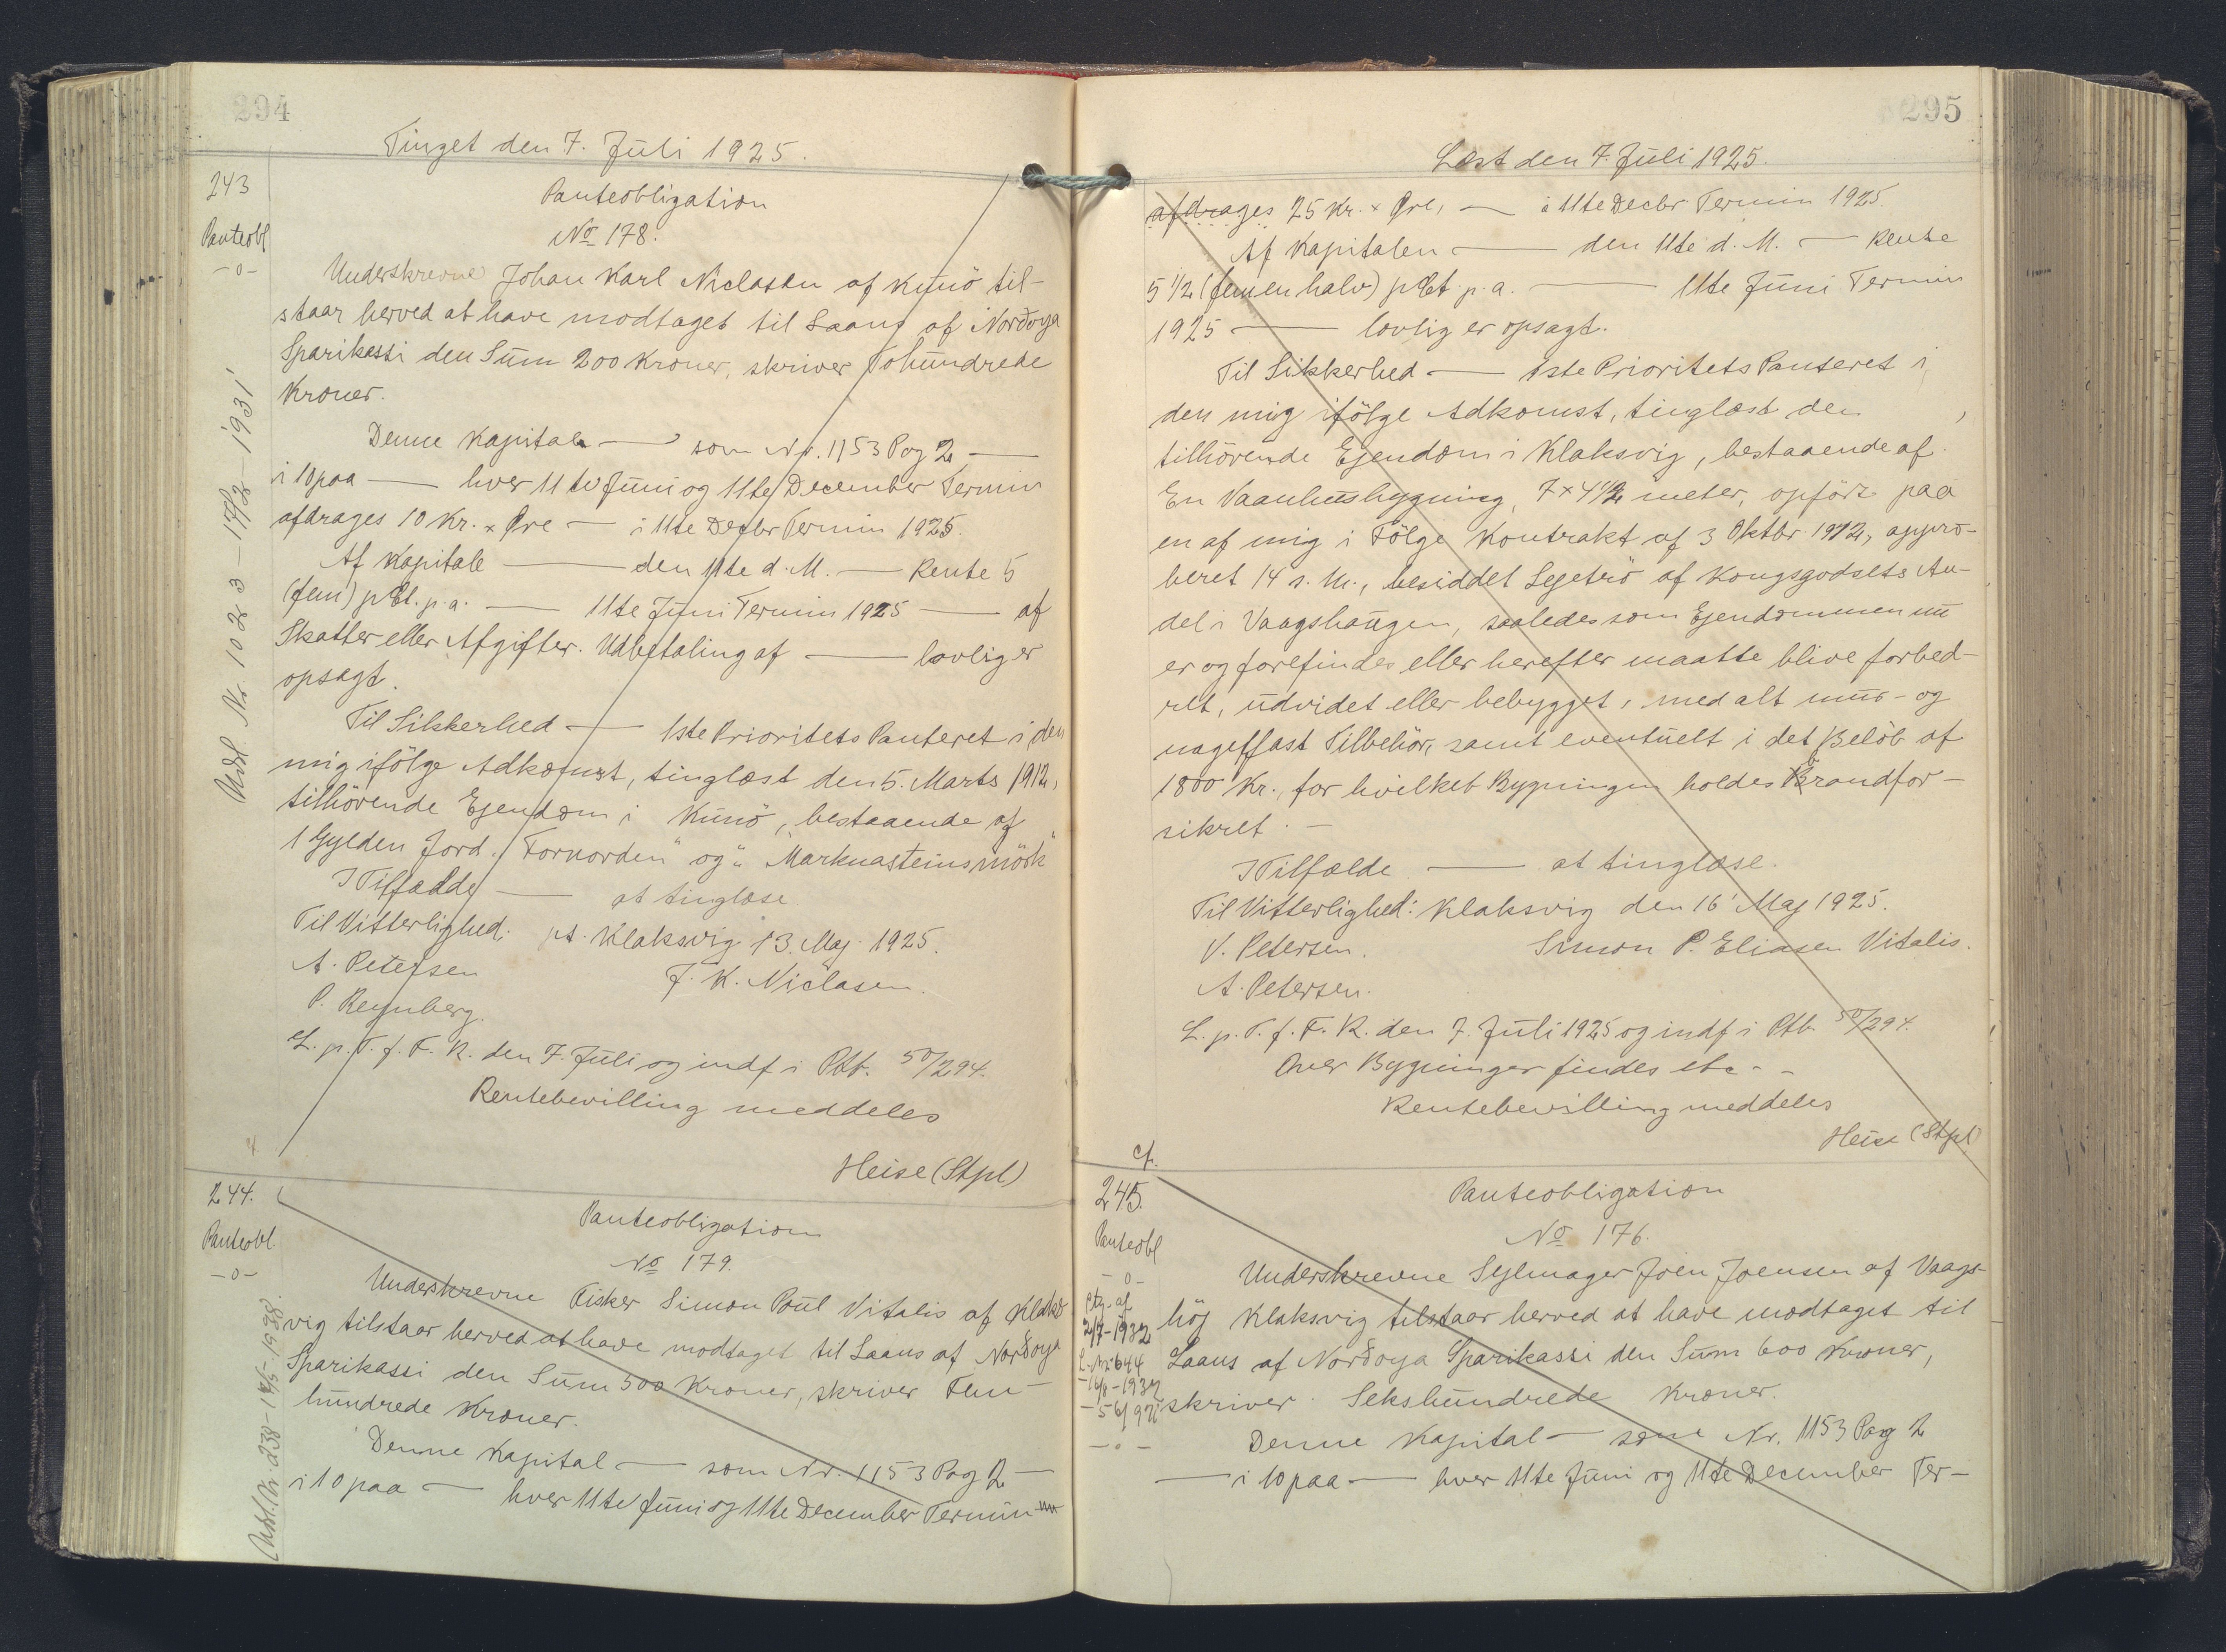 294
Tinget den 7. Juli 1925.
243
Panteobl
-0-
Udsl Nr. 1023 - 17/2 1931
Panteobligation
No 178.
Underskrevne Johan Karl Niclasen af Kunö til-
staar herved at have modtaget til Laans af Norðoya
Sparikassi den Sum 200 Kroner, skriver Tohundrede
Kroner.
Denne Kapital — som Nr. 1153 Pag 2 —
i 10 paa — hver 11te Juni og 11te December Termin
afdrages 10 Kr. x Øre — i 11te Decbr Termin 1925.
Af Kapitale — den 11te d. M. — Rente 5
(fem) pCt. p.a. — 11te Juni Termin 1925 — af
Skatter eller Afgifter. Udbetaling af — lovlig er
opsagt.
Til Sikkerhed — 1ste Prioritets Panteret i den
mig ifölge Adkomst, tinglæst den 5. Marts 1912,
tilhörende Ejendom i Kunö, bestaaende af
1 Gylden Jord. "Fornorden" og "Marknasteinsmörk"
I Tilfælde — at tinglæse.
Til Vitterlighed: pt. Klaksvig 13. Maj 1925.
A. Petersen
J. K. Niclasen.
P. Reynberg.
L. p. T. f. F. R. den 7. Juli og indf i Ptb. 50/294.
Rentebevilling meddeles
Heise (Stpl)
244.
Panteobl.
-0-
Udsl. Nr. 238 - 14/5 - 1938.
Panteobligation
No 179.
Underskrevne Fisker Simon Poul Vitalis af Klaks
vig tilstaar herved at have modtaget til Laans af Norðoya
Sparikassi den Sum 500 Kroner, skriver Fem-
hundrede Kroner.
Denne Kapital — som Nr. 1153 Pag 2 —
i 10 paa — hver 11te Juni og 11te December Termin
295
Læst den 7. Juli 1925.
afdrages 25 Kr. x Øre, — i 11te Decbr Termin 1925.
Af Kapitalen — den 11te d. M. — Rente
5 1/2 (femenhalv) pCt. p.a. — 11te Juni Termin
1925 — lovlig er opsagt.
Til Sikkerhed — 1ste Prioritets Panteret i
den mig ifölge Adkomst, tinglæst den ,
tilhörende Ejendom i Klaksvig, bestaaende af
En Vaanhusbygning, 7 x 4 1/2 meter, opfört paa
en af mig i Fölge Kontrakt af 3 Oktbr 1912, appro-
beret 14 s. M., besiddet Lejetrö af Kongsgodsets An-
del i Vaagshaugen, saaledes som Ejendommen nu
er og forefindes eller herefter maatte blive forbed-
ret, udvidet eller bebygget, med alt mur- og
nagelfast Tilbehör, samt eventuelt i det Belöb af
1800 Kr., for hvilket Bygningen holdes Brandfor-
sikret. -
I Tilfælde — at tinglæse.
Til Vitterlighed: Klaksvig den 16' Maj 1925.
V. Petersen.
Simon P. Eliasen Vitalis.
A. Petersen.
L. p. T. f. F. R. den 7. Juli 1925 og indf i Ptb. 50/294.
Over Bygninger findes etc - -
Rentebevilling meddeles
Heise (Stpl)
cf.
245.
Panteobl
-0-
af
2/7 - 1932
L. Nr. 644
- 16/8 - 1932
- 0 -
Panteobligation
No 176.
Underskrevne Sejlmager Joen Joensen af Vaags-
höj Klaksvig tilstaar herved at have modtaget til
Laans af Norðoya Sparikassi den Sum 600 Kroner,
skriver Sekshundrede Kroner.
Denne Kapital — som Nr. 1153 Pag 2
— i 10 paa — hver 11te Juni og 11te December Ter-